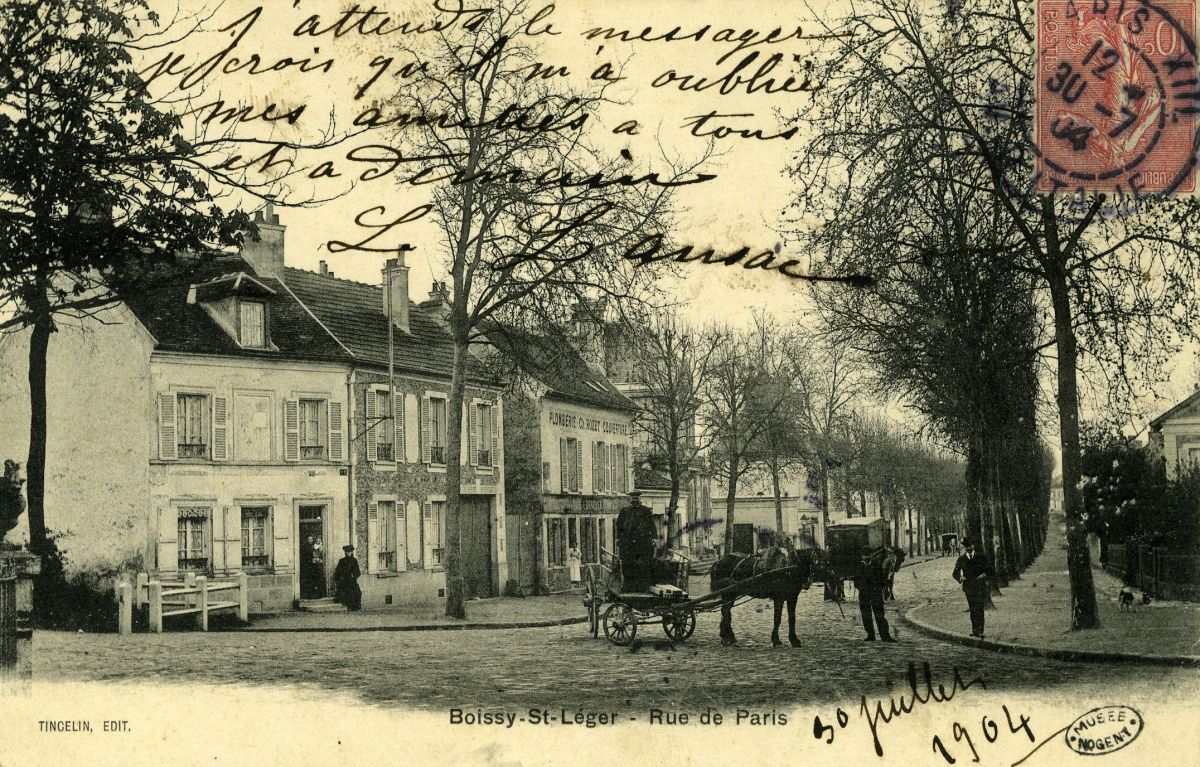 J'attends le messager
je crois qu'il m'a oubliée
mes amitiés à tous
et à demain
L. Lansac
PARIS XIII
12
30 -7
04
ITALIE
POSTES
10
PLOMBERIE CH. COUVERTURE
Boissy-St-Léger - Rue de Paris
TINCELIN, EDIT.
30 juillet
1904
MUSÉE
NOGENT